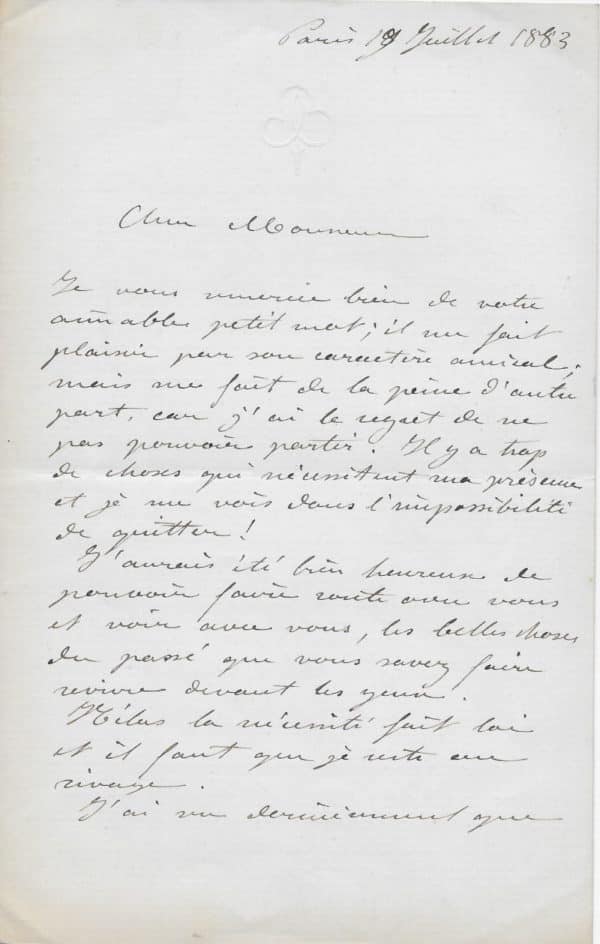 Paris 19 Juillet 1883
Cher Monsieur
Je vous remercie bien de votre
aimable petit mot; il me fait
plaisir par son caractère amical;
mais me fait de la peine d'autre
part, car j'ai le regret de ne
pas pouvoir partir. Il y a trop
de choses qui nécessitent ma présence
et je me vois dans l'impossibilité
de quitter!
J'aurais été bien heureuse de
pouvoir faire route avec vous
et voir avec vous, les belles choses
du passé que vous savez faire
revivre devant les yeux.
Hélas la nécessité fait loi
et il faut que je reste au
rivage.
J'ai vu dernièrement que